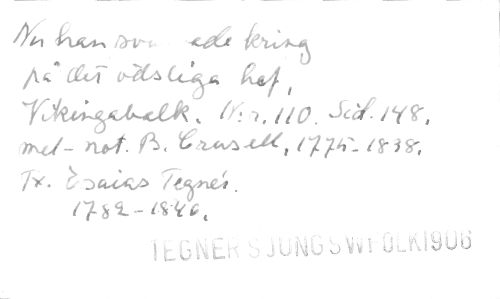 Nu han sv ade kring
på det ödsliga haf,
Vikingabalk. N:r. 110. Sid. 148,
mel-not. B. Crusell, 1775-1838.
Tx. Esaias Tegnér.
1782-1846.
TEGNER SJUNGSWFOLK1906